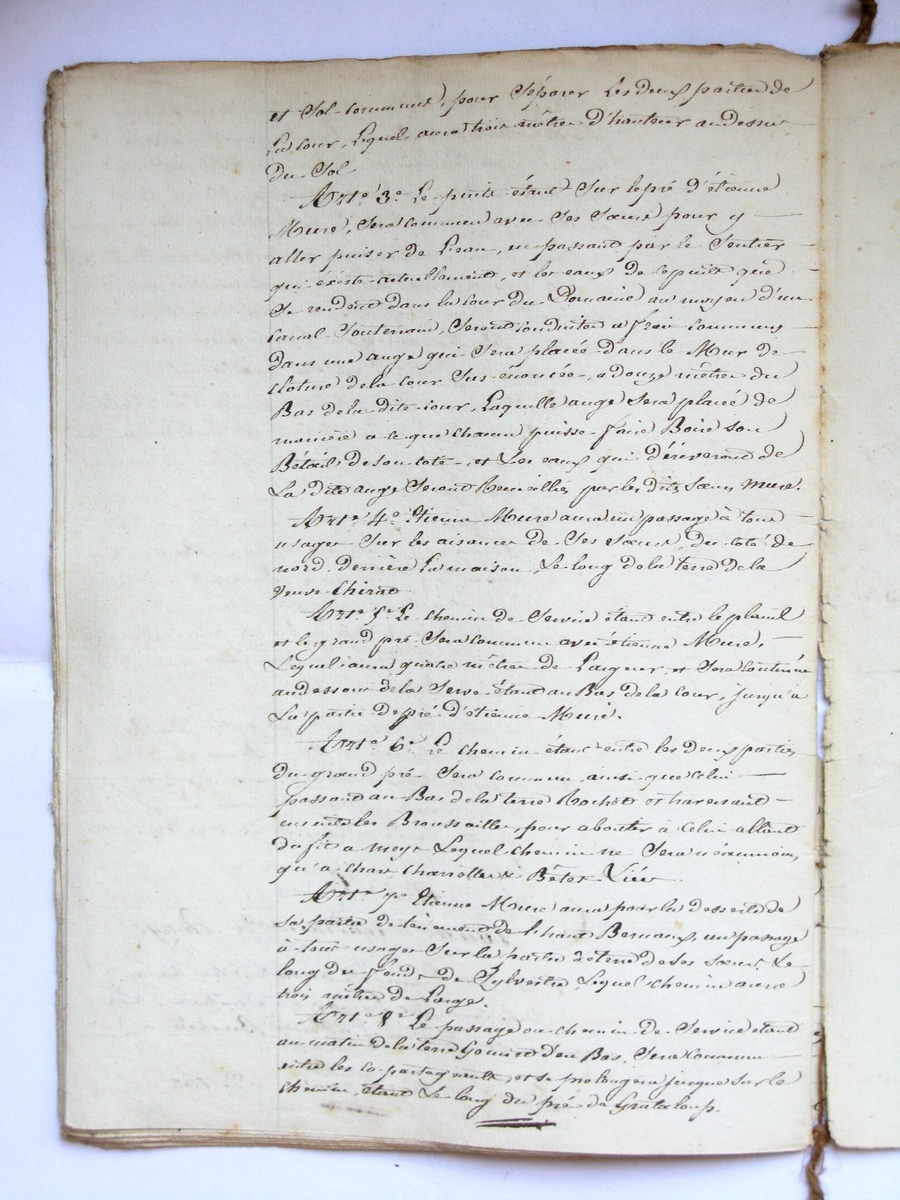 et Sol commun, pour Séparer Les deux partie de
La Cour, Lequel aura trois mêtre d'hauteur audessus
du Sol
Art.e 3.e Le puits étant Sur le pré d'étienne
Mure, Sera commun avec Ses Sœurs pour y
aller puiser de L'eau, en passant par le Sentier
qui éxiste actuellement, et les eaux de ce puits qui
Se rendent dans la cour du Domaine au moyen d'un
canal Souterrain, Seront conduites a frais communs
dans une auge qui Sera placée dans le Mur de
cloture de la cour Sus-énoncée, a douze mêtre du
Bas de la dite cour, Laquelle auge Sera placée de
manière a ce que chacun puisse faire Boire son
Bétail de son coté, et Les eaux qui de
La dite auge Seront Recueillies par les dites Sœurs Mure.
Art.e 4.e Etienne Mure aura un passage à tous
usages Sur les aisances de Ses Sœurs, du coté de
nord derrière La maison, Le long de la terre de la
veuve
Art.e 5.e Le chemin de Service étant entre le plant
et le grand pré Sera Commun avec étienne Mure,
Lequel aura quatre mêtre de Largeur, et Sera Continué
audessous de la Serve étant au Bas de la Cour, jusqu'a
La partie de pré d'étienne Mure.
Art.e 6.e Le chemin étant entre les deux parties
du grand pré Sera commun, ainsi que Celui
passant au Bas de la terre Rochet et traversant
ensuite les Broussailles, pour aboutir à Celui allant
du a Lequel chemin ne Sera néanmoins,
qu'a Char Charrettes & Bêtes Liées
Art.e 7.e Etienne Mure aura pour la desserte de
Sa partie de tènement de L'haut un passage
à tous usages Sur la partie de terre de Ses Sœurs, Le
long du fonds de Sylvestre, Lequel chemin aura
trois mêtre de Large.
Art.e 8.e Le passage ou chemin de Service étant
au matin de la terre d'en Bas, Sera Commun
entre les co-partageants, et se prolongera jusque sur le
chemin, étant Le long du pré de Grataloup.